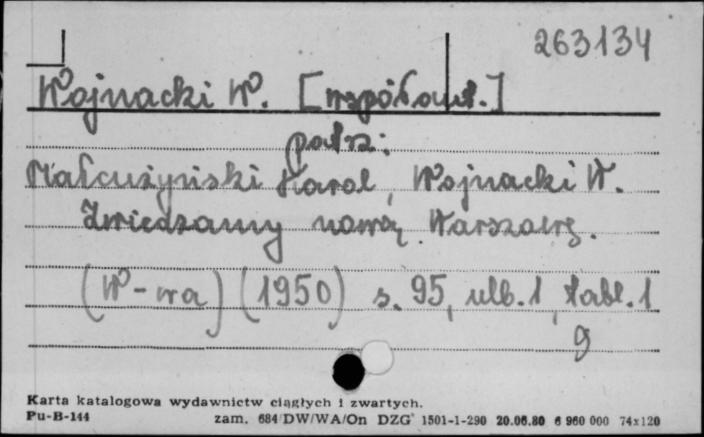 263134
Wojnacki W. [współaut.]
patrz:
Małcużyński Karol, Wojnacki W.
Zwiedzamy nową Warszawę.
(W-wa) (1950) s. 95, ulb. 1, tabl. 1
9
Karta katalogowa wydawnictw ciągłych i zwartych.
Pu-B-144 zam. 684/DW/WA/On DZG 1501-1-290 20.06.80 6 960 000 74x120